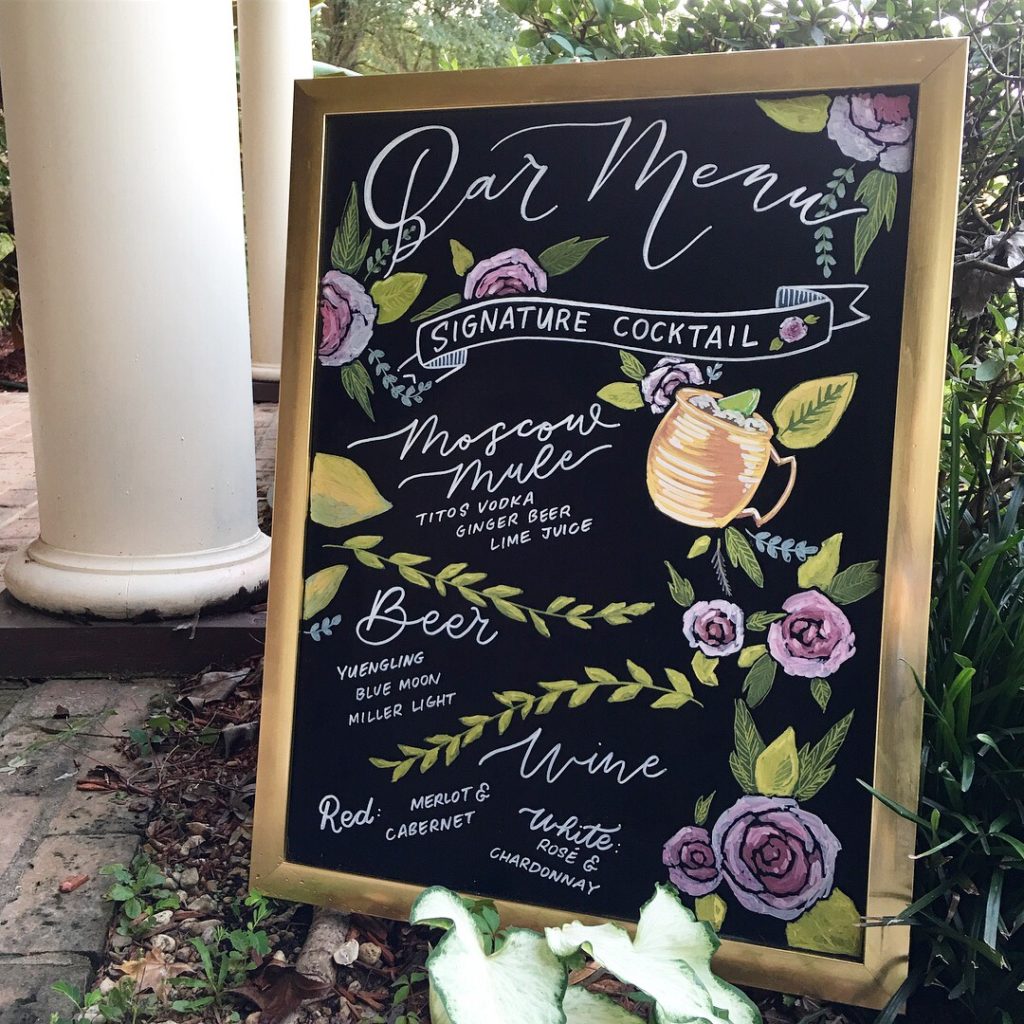 Bar Menu
SIGNATURE COCKTAIL
Moscow
Mule
TITOS VODKA
GINGER BEER
LIME JUICE
Beer
YUENGLING
BLUE MOON
MILLER LIGHT
Wine
Red: MERLOT &
CABERNET
White:
ROSÉ &
CHARDONNAY